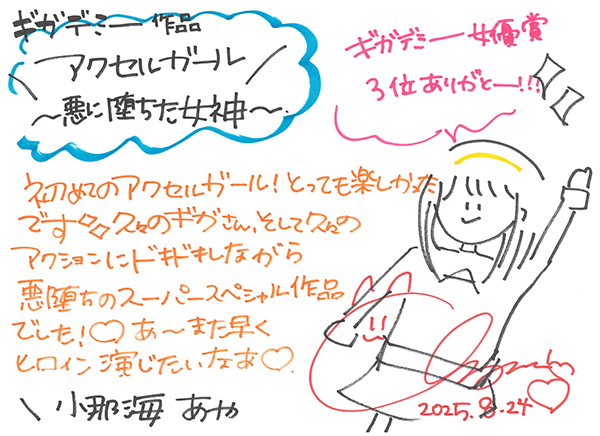 ギガデミー作品
アクセルガール
〜悪に堕ちた女神〜
ギガデミー女優賞
3位ありがとー!!!
初めてのアクセルガール!とっても楽しかった
です 久々のギガさん、そして久々の
アクションにドキドキしながら
悪堕ちのスーパースペシャル作品
でした!♡ あ〜また早く
ヒロイン演じたいなあ♡
\ 小那海 あや
2025.8.24